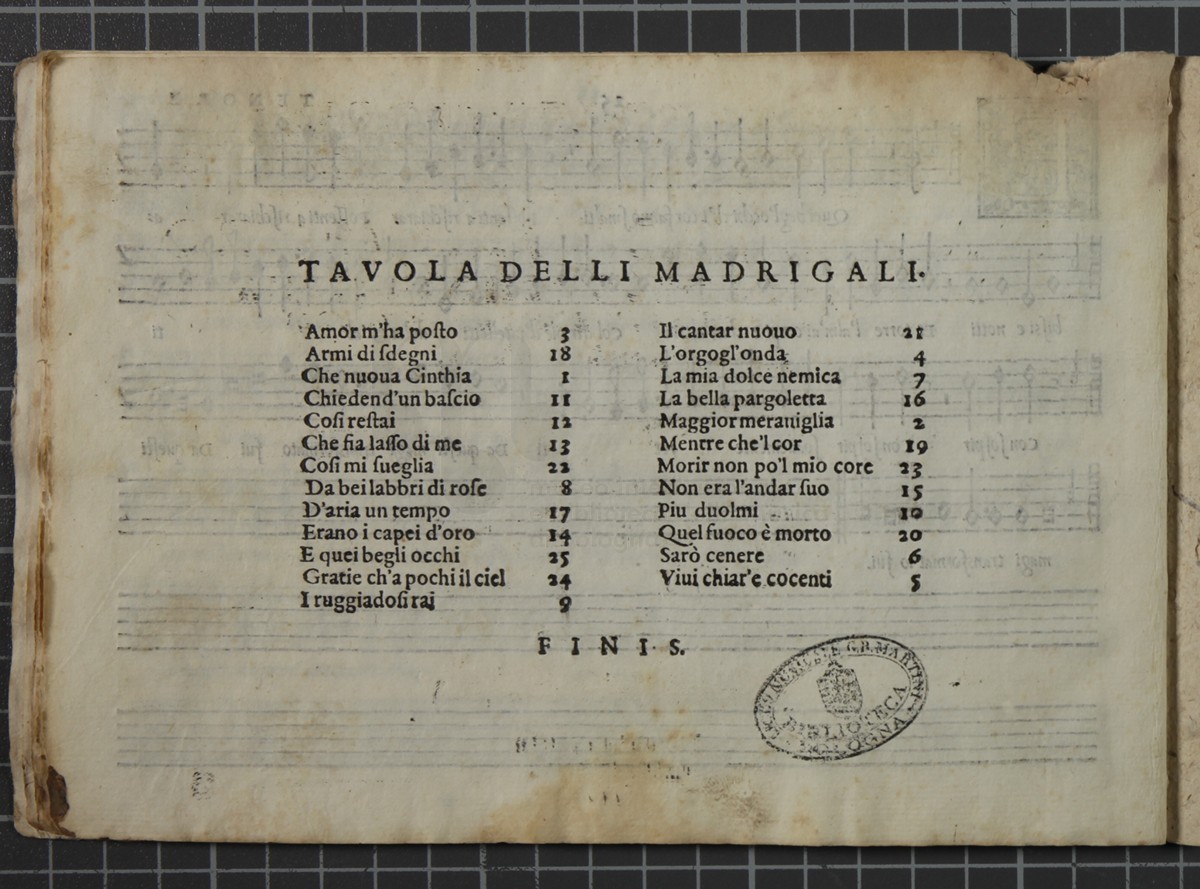 TAVOLA DELLI MADRIGALI.
Amor m'ha poſto 3
Armi di ſdegni 18
Che nuoua Cinthia 1
Chieden d'un baſcio 11
Coſi reſtai 12
Che ſia laſſo di me 13
Coſi mi ſueglia 22
Da bei labbri di roſe 8
D'aria un tempo 17
Erano i capei d'oro 14
E quei begli occhi 25
Gratie ch'a pochi il ciel 24
I ruggiadoſi rai 9
Il cantar nuouo 21
L'orgogl'onda 4
La mia dolce nemica 7
La bella pargoletta 16
Maggior merauiglia 2
Mentre che'l cor 19
Morir non po'l mio core 23
Non era l'andar ſuo 15
Piu duolmi 10
Quel fuoco è morto 20
Sarò cenere 6
Viui chiar'e cocenti 5
FINIS.
G.B. MARTINI
BIBLIOTECA
BOLOGNA